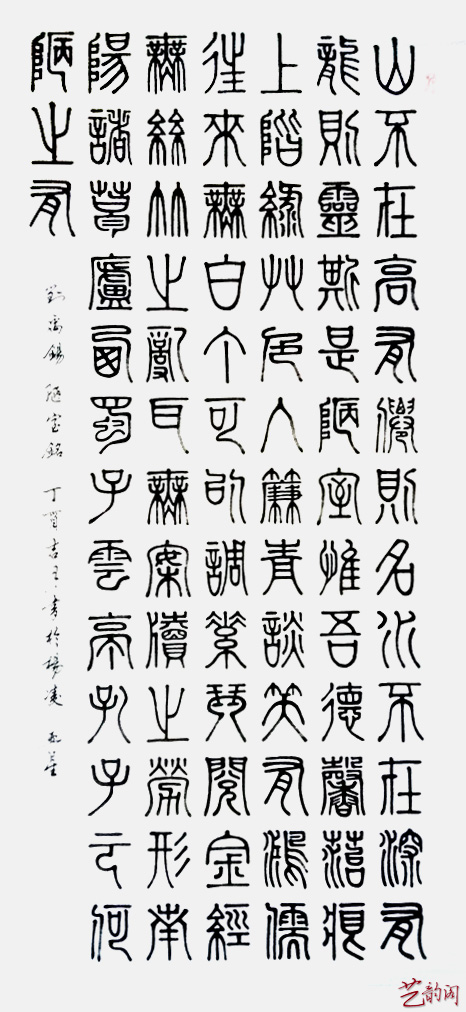 山不在高有僊則名水不在深有
龍則靈斯是陋室惟吾德馨菭痕
上階綠艸色入簾青談笑有鴻儒
往來無白丁可以調素琴閱金經
無絲竹之亂耳無案牘之勞形南
陽諸葛廬西蜀子雲亭孔子云何
陋之有
劉禹錫 陋室銘 丁酉吉月書於楊凌
艺韵阁